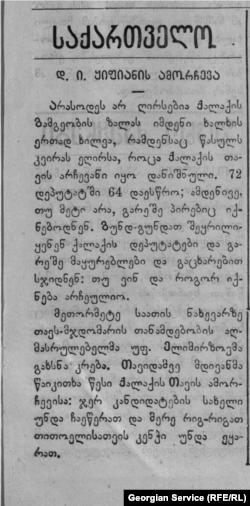 საქართველო
დ. ი. ყიფიანის ამორჩევა
არასოდეს არ ღირსებია ქალაქის
გამგეობის ზალას იმდენი ხალხის
ერთად ხილვა, რამდენსაც წასულს
კვირას ეღირსა, როცა ქალაქის თა-
ვის არჩევანი იყო დანიშნული. 72
დეპუტატში 64 დაესწრო; ამდენივე,
თუ მეტი არა, გარეშე პირებიც იქ-
ნებოდნენ. გუნდ-გუნდათ შეყრილი-
ყვნენ ქალაქის დეპუტატები და გა-
რეშე მაყურებლები და გაცხარებით
სჯიდნენ: თუ ვინ და როგორ იქ-
ნება არჩეულიო.
მეთორმეტე საათის ნახევარზე
თავს-მჯდომარის თანამდებობის აღ-
მასრულებელმა უფ. ელიმირზოვმა
გახსნა კრება. თავიდამვე მდივანმა
წაიკითხა წესი ქალაქის თავის ამორ-
ჩევისა: ჯერ კანდიდატების სახელი
უნდა ჩაეწერათ და მერე რიგ-რიგათ
თითოელისათვის კენჭი უნდა ეყა-
რათ.
Georgian Service (RFE/RL)